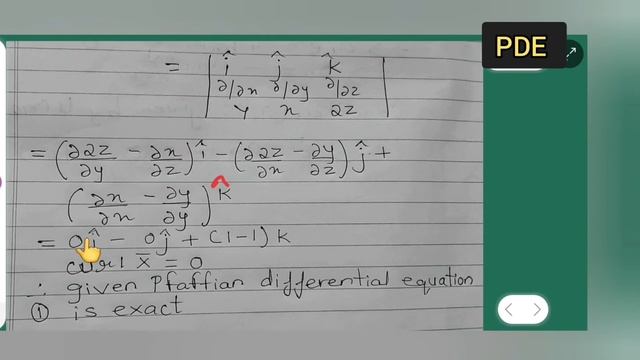 PDE
= | î ĵ k̂ |
∂/∂x ∂/∂y ∂/∂z
y x 2z
= (∂2z/∂y − ∂x/∂z) î − (∂2z/∂x − ∂y/∂z) ĵ +
(∂x/∂x − ∂y/∂y) k̂
= 0î − 0ĵ + (1−1) k
curl x̄ = 0
∴ given Pfaffian differential equation
① is exact